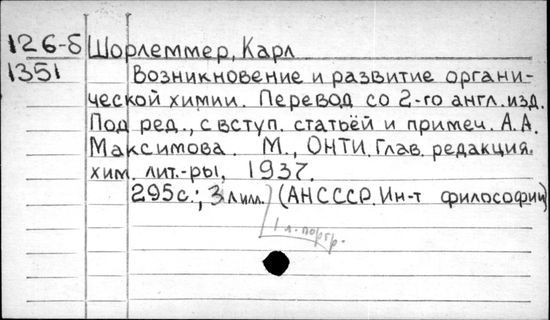 126-Б Шорлеммер, Карл
1351 Возникновение и развитие органи-
ческой химии. Перевод со 2-го англ. изд.
Под ред., с вступ. статьёй и примеч. А.А.
Максимова. М., ОНТИ. Глав. редакция.
хим. лит-ры, 1937.
295с.; 3 л илл. (АН СССР. Ин-т философии)
1 л. портр.